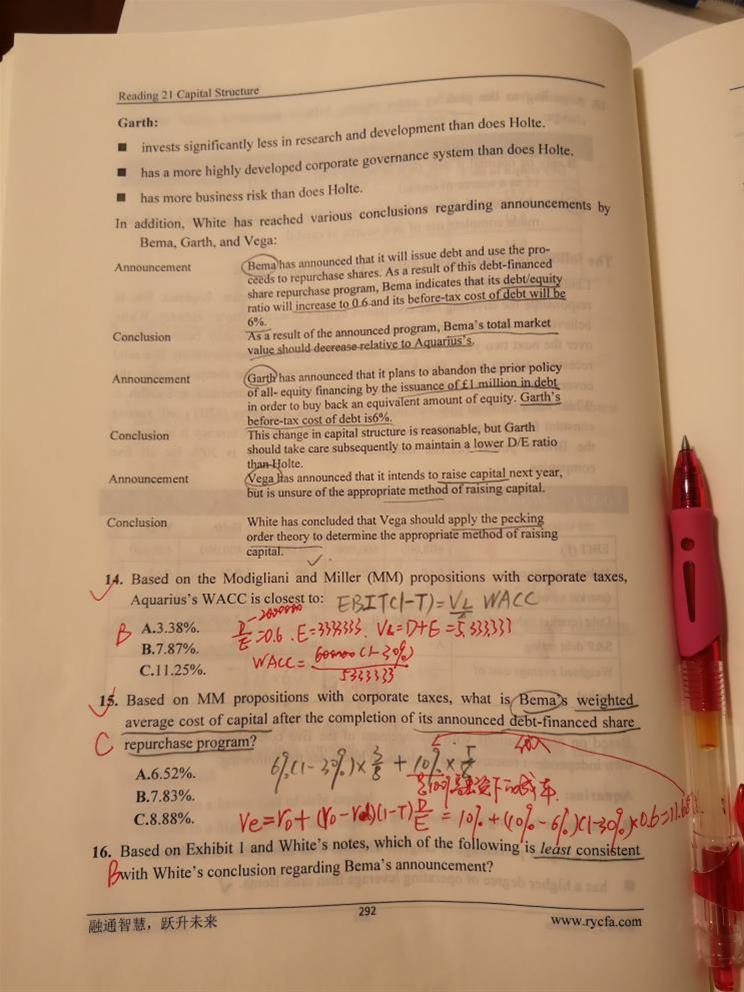 Reading 21 Capital Structure
Garth:
■ invests significantly less in research and development than does Holte.
■ has a more highly developed corporate governance system than does Holte.
■ has more business risk than does Holte.
In addition, White has reached various conclusions regarding announcements by
Bema, Garth, and Vega:
Announcement Bema has announced that it will issue debt and use the pro-
ceeds to repurchase shares. As a result of this debt-financed
share repurchase program, Bema indicates that its debt/equity
ratio will increase to 0.6 and its before-tax cost of debt will be
6%.
Conclusion As a result of the announced program, Bema's total market
value should decrease relative to Aquarius's.
Announcement Garth has announced that it plans to abandon the prior policy
of all- equity financing by the issuance of £1 million in debt
in order to buy back an equivalent amount of equity. Garth's
before-tax cost of debt is6%.
Conclusion This change in capital structure is reasonable, but Garth
should take care subsequently to maintain a lower D/E ratio
than Holte.
Announcement Vega has announced that it intends to raise capital next year,
but is unsure of the appropriate method of raising capital.
Conclusion White has concluded that Vega should apply the pecking
order theory to determine the appropriate method of raising
capital.
14. Based on the Modigliani and Miller (MM) propositions with corporate taxes,
Aquarius's WACC is closest to: EBIT(1-T)=VL WACC
B A.3.38%. D/E=0.6. E=3333333. VL=D+E=5333333
B.7.87%. WACC=600000(1-30%)/5333333
C.11.25%.
15. Based on MM propositions with corporate taxes, what is Bema's weighted
average cost of capital after the completion of its announced debt-financed share
C repurchase program?
A.6.52%. 6%(1-30%)×3/8+10%×5/8
B.7.83%.
C.8.88%. re=r0+(r0-rd)(1-T)D/E=10%+(10%-6%)(1-30%)×0.6=11.68%
16. Based on Exhibit 1 and White's notes, which of the following is least consistent
B with White's conclusion regarding Bema's announcement?
292
融通智慧，跃升未来 www.rycfa.com